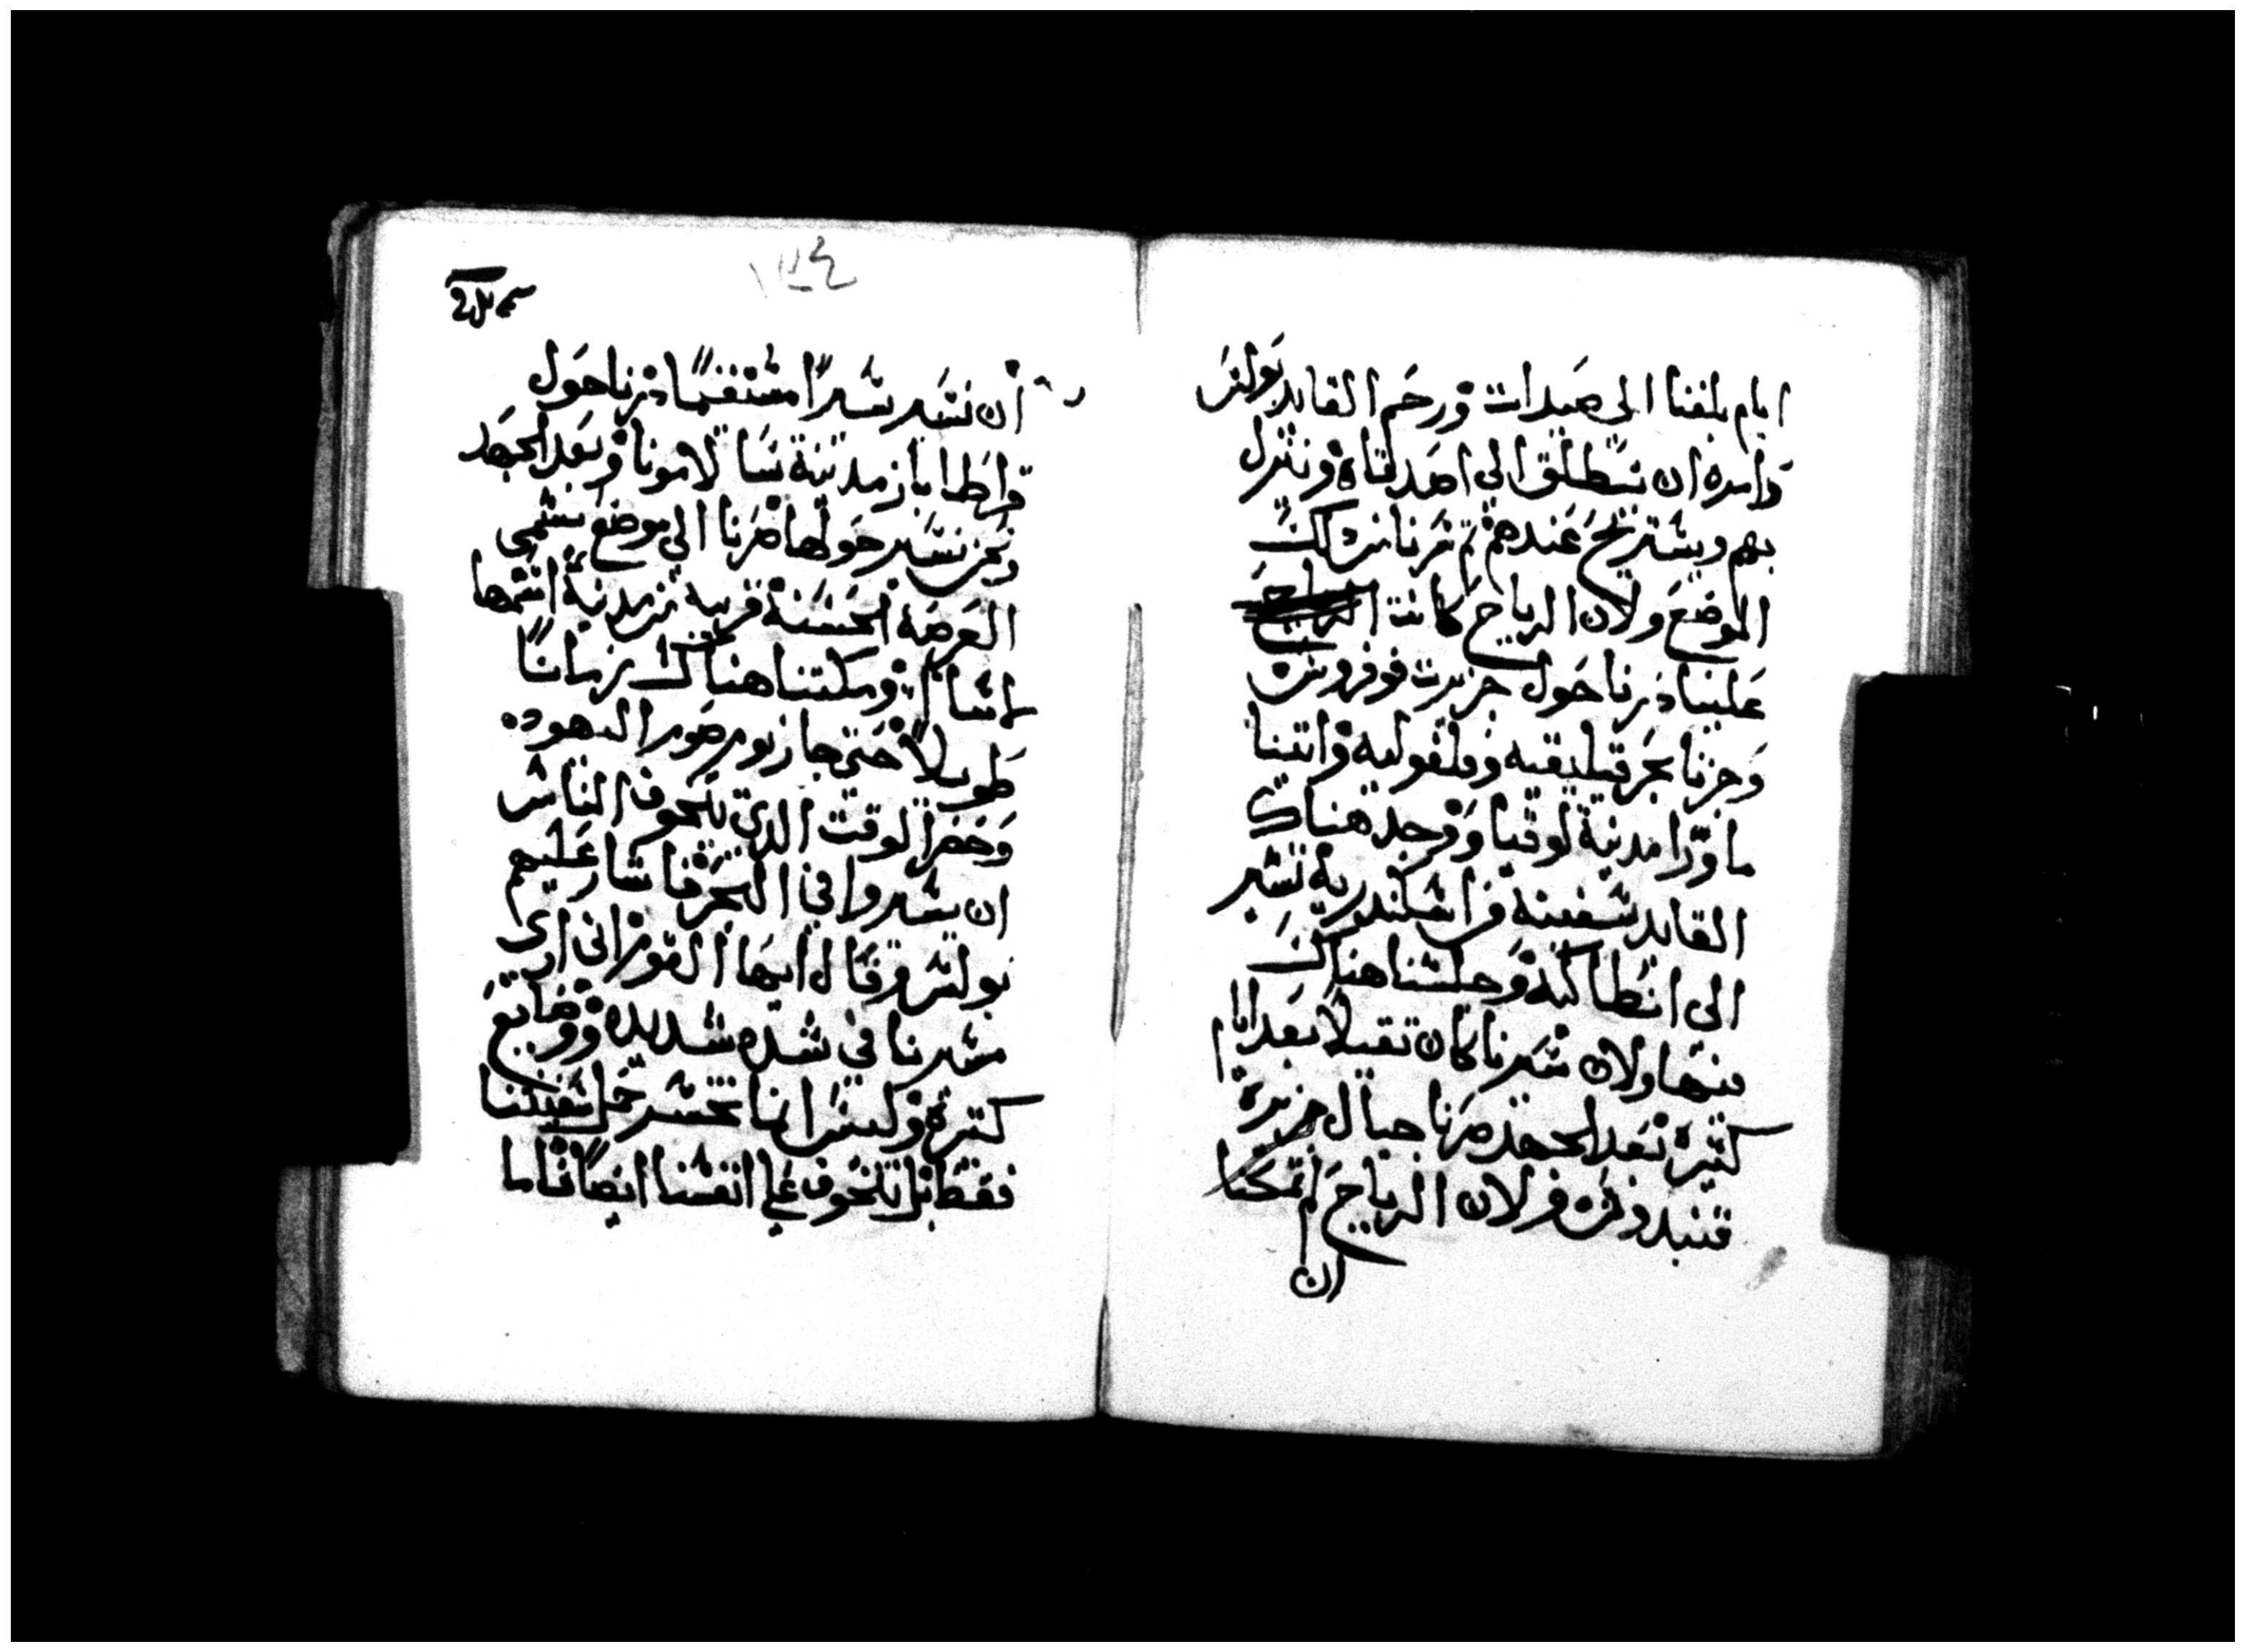 ايام بلغنا الى صيدات ورحم القايد بولس
وامره ان ينطلق الي اصدقاه وننزل
بهم ويستريح عندهم ثم سرنا من هناك
الموضع ولان الرياح كانت
علينا درنا حول جزيرت قوفروس
وجزنا بحر قيليقيه وفلفوليه واتينا
ماورا مدينة لوقيا ووجد هناك
القايد سفينة من اسكندرية تسير
الى انطاكية وجلسنا هناك
فيها ولان سيرنا كان تقيلا بعد ايام
كثيرة بعد الجهد صرنا حيال جزيرة
قنيدوس ولان الرياح لم تمكنا
ان
١٣٤
ان نسير سيرًا مستقيمًا درنا حول
قراطا بازا مدينة سالامونا وبعد الجهد
ونحن نسير حولها صرنا الى موضع يسمى
المرصة الحسنة قريبه من مدينة اسمها
لاسا ومكتنا هناك زمانًا
طويلًا حتى جاز يوم صوم اليهود
وحضر الوقت الذي يتخوف الناس
ان يسيروا في البحر فاشار عليهم
بولس وقال ايها القوم اني اري
مسيرنا في شده شديده ووضايع
كتيرة وليس انما تخسر حمل سفينتنا
فقط بل نتخوف علي انفسنا ايضًا فاما